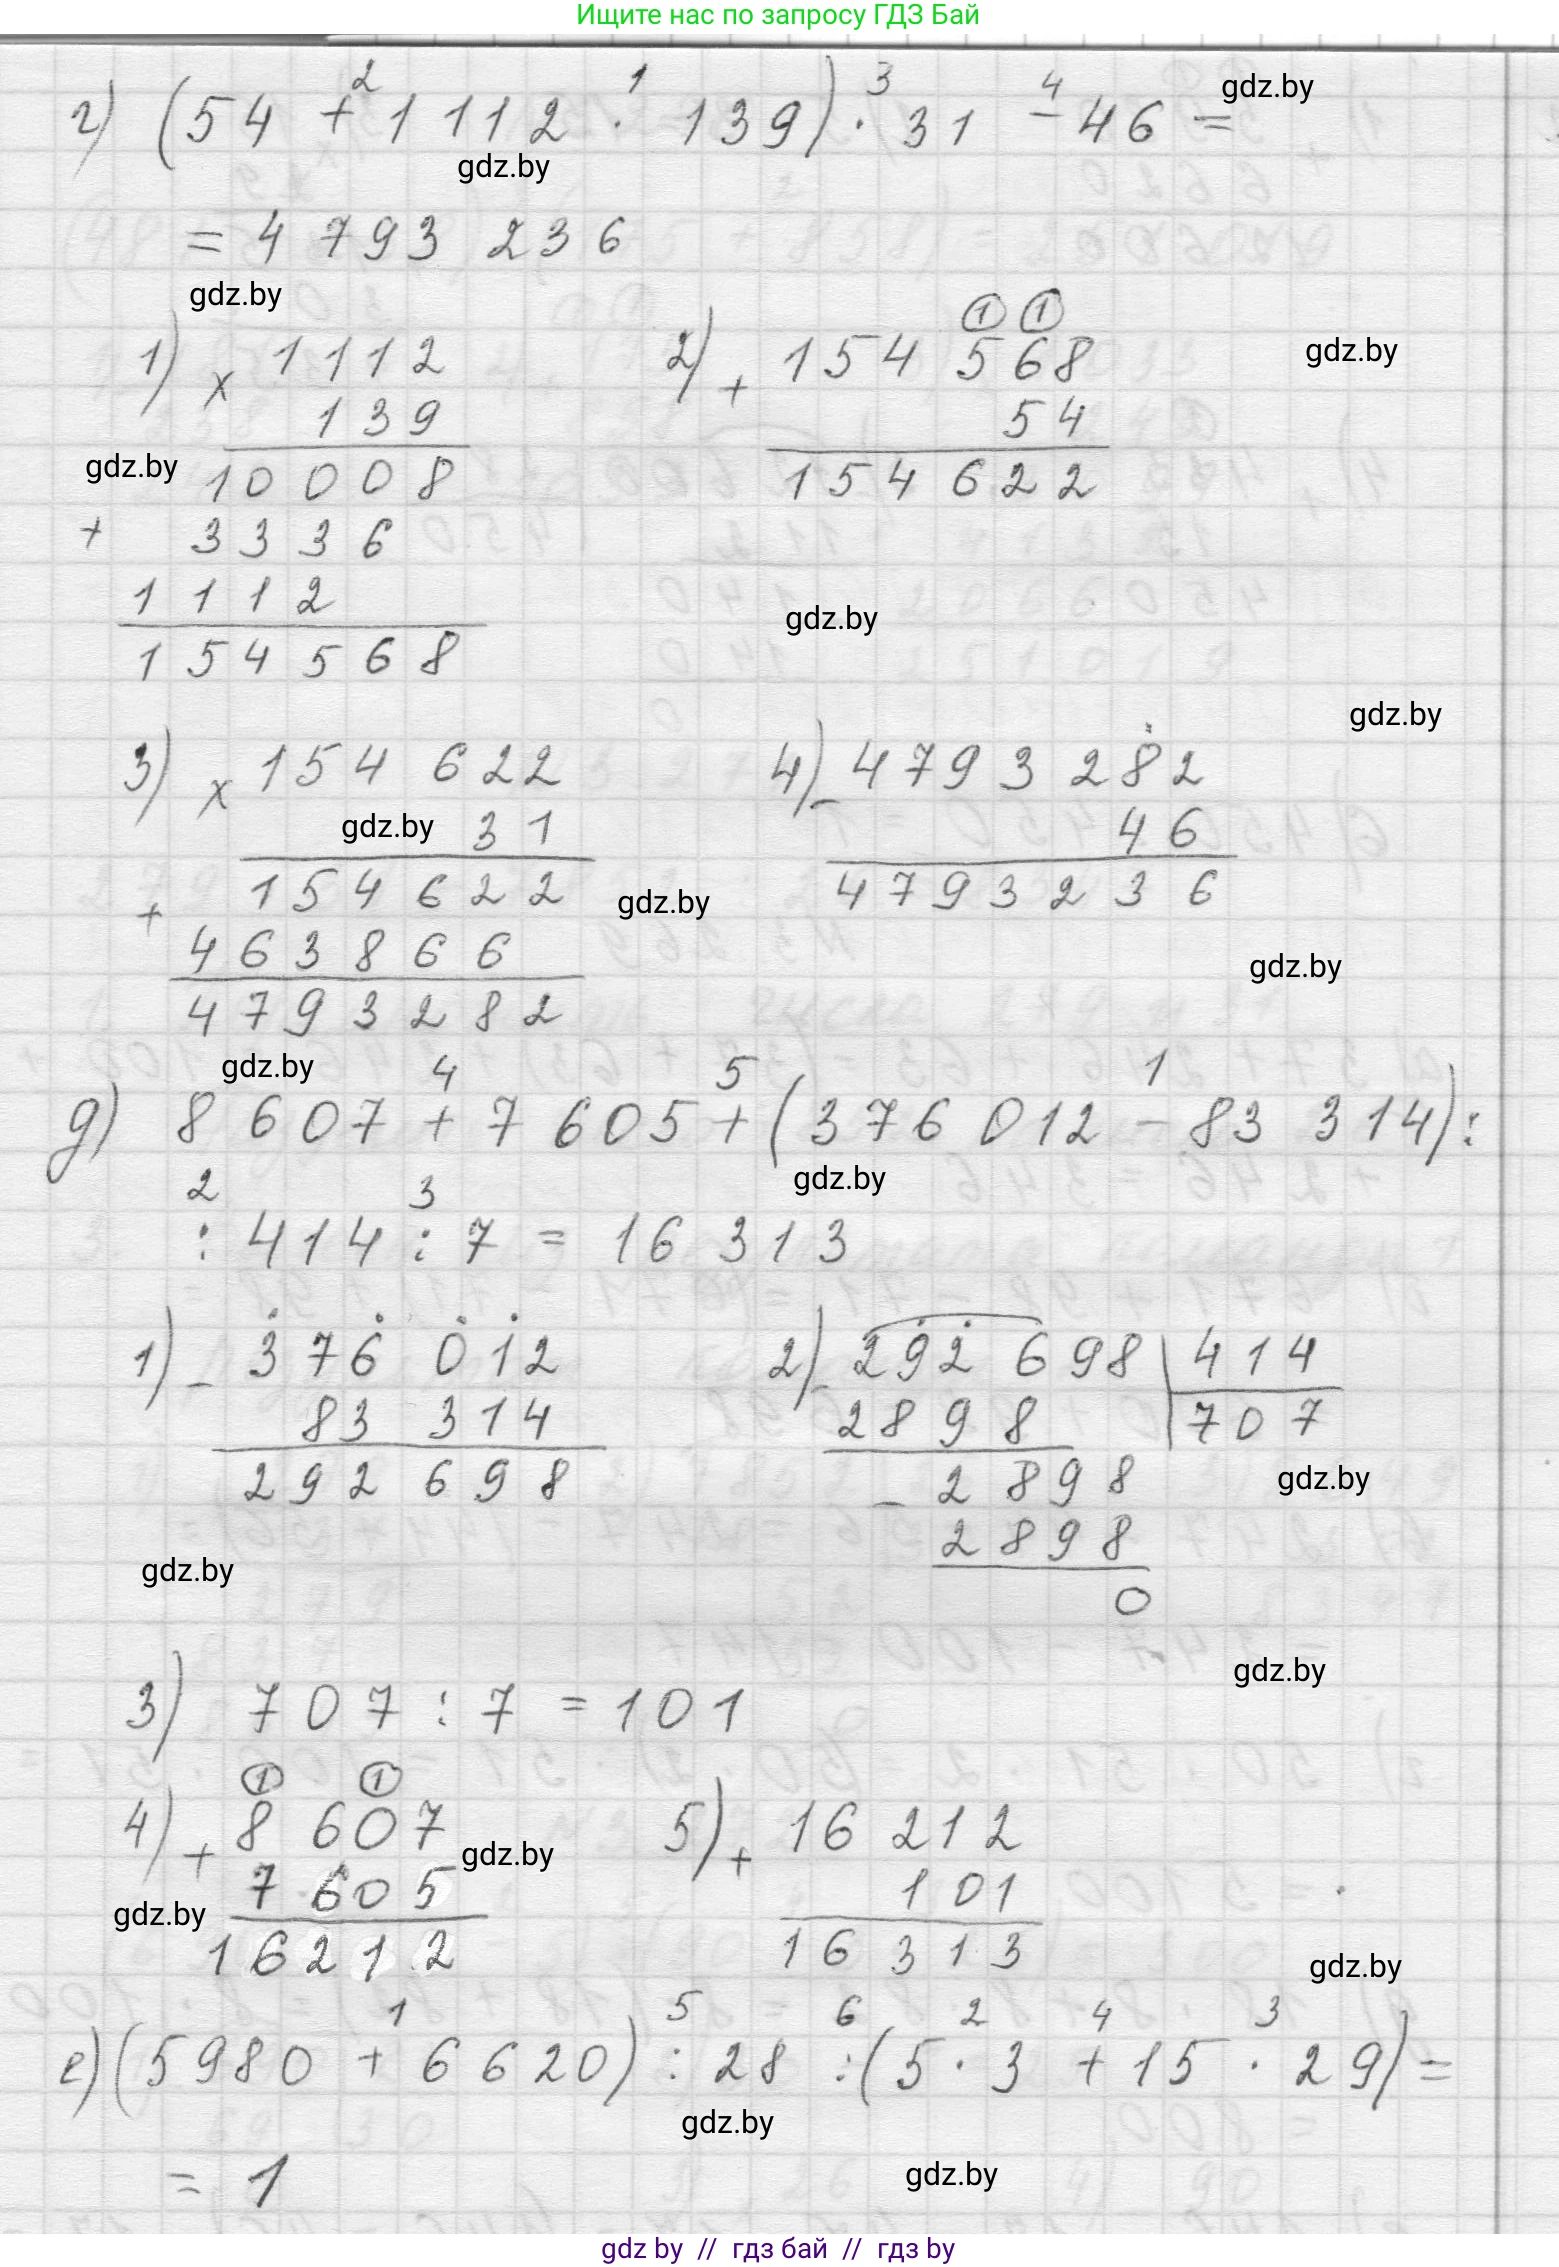 Ищите нас по запросу ГДЗ Бай
г) (54 + 1112 · 139) · 31 - 46 =
2 1 3 4
gdz.by
gdz.by
= 4 793 236
gdz.by
1) × 1112
139
10008
+ 3336
1112
154568
gdz.by
2) + 154 568
1 1
54
154622
gdz.by
gdz.by
gdz.by
3) × 154 622
31
+ 154622
463866
4793282
gdz.by
gdz.by
4) - 4793 282
46
4793236
gdz.by
gdz.by
4 5 1
д) 8 607 + 7 605 + (376 012 - 83 314) :
gdz.by
2 3
: 414 : 7 = 16 313
1) - 376 012
83 314
292 698
gdz.by
2) - 292 698 | 414
2898 | 707
- 2898
2898
0
gdz.by
gdz.by
3) 707 : 7 = 101
1 1
4) + 8 607
7 605
16212
gdz.by
gdz.by
5) + 16 212
101
16 313
gdz.by
1 5 6 2 4 3
е) (5980 + 6620) : 28 : (5 · 3 + 15 · 29) =
gdz.by
= 1
gdz.by
gdz by // гдз бай // гдз by